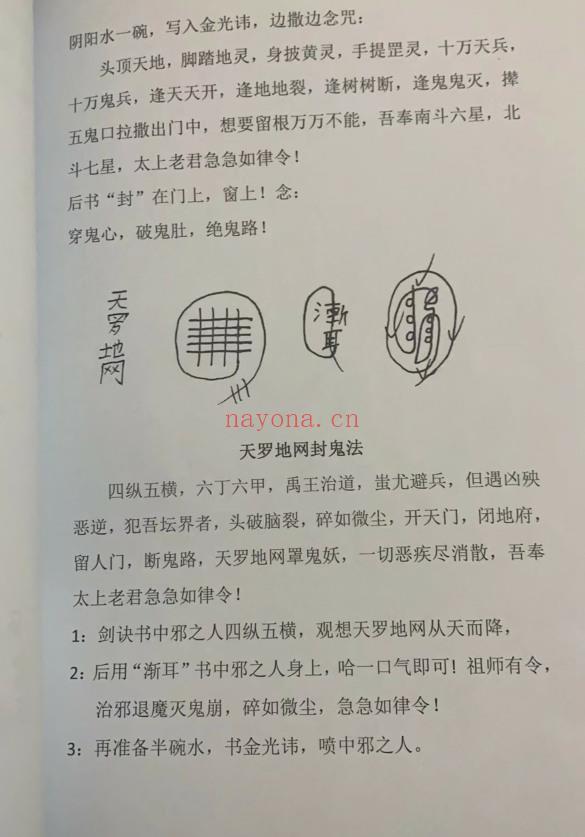 阴阳水一碗，写入金光讳，边撒边念咒：
头顶天地，脚踏地灵，身披黄灵，手提罡灵，十万天兵，
十万鬼兵，逢天天开，逢地地裂，逢树树断，逢鬼鬼灭，撵
五鬼口拉撒出门中，想要留根万万不能，吾奉南斗六星，北
斗七星，太上老君急急如律令！
后书“封”在门上，窗上！念：
穿鬼心，破鬼肚，绝鬼路！
天罗地网
渐耳
nayona.cn
天罗地网封鬼法
四纵五横，六丁六甲，禹王治道，蚩尤避兵，但遇凶殃
恶逆，犯吾坛界者，头破脑裂，碎如微尘，开天门，闭地府，
留人门，断鬼路，天罗地网罩鬼妖，一切恶疾尽消散，吾奉
太上老君急急如律令！
1：剑诀书中邪之人四纵五横，观想天罗地网从天而降，
2：后用“渐耳”书中邪之人身上，哈一口气即可！祖师有令，
治邪退魔灭鬼崩，碎如微尘，急急如律令！
3：再准备半碗水，书金光讳，喷中邪之人。